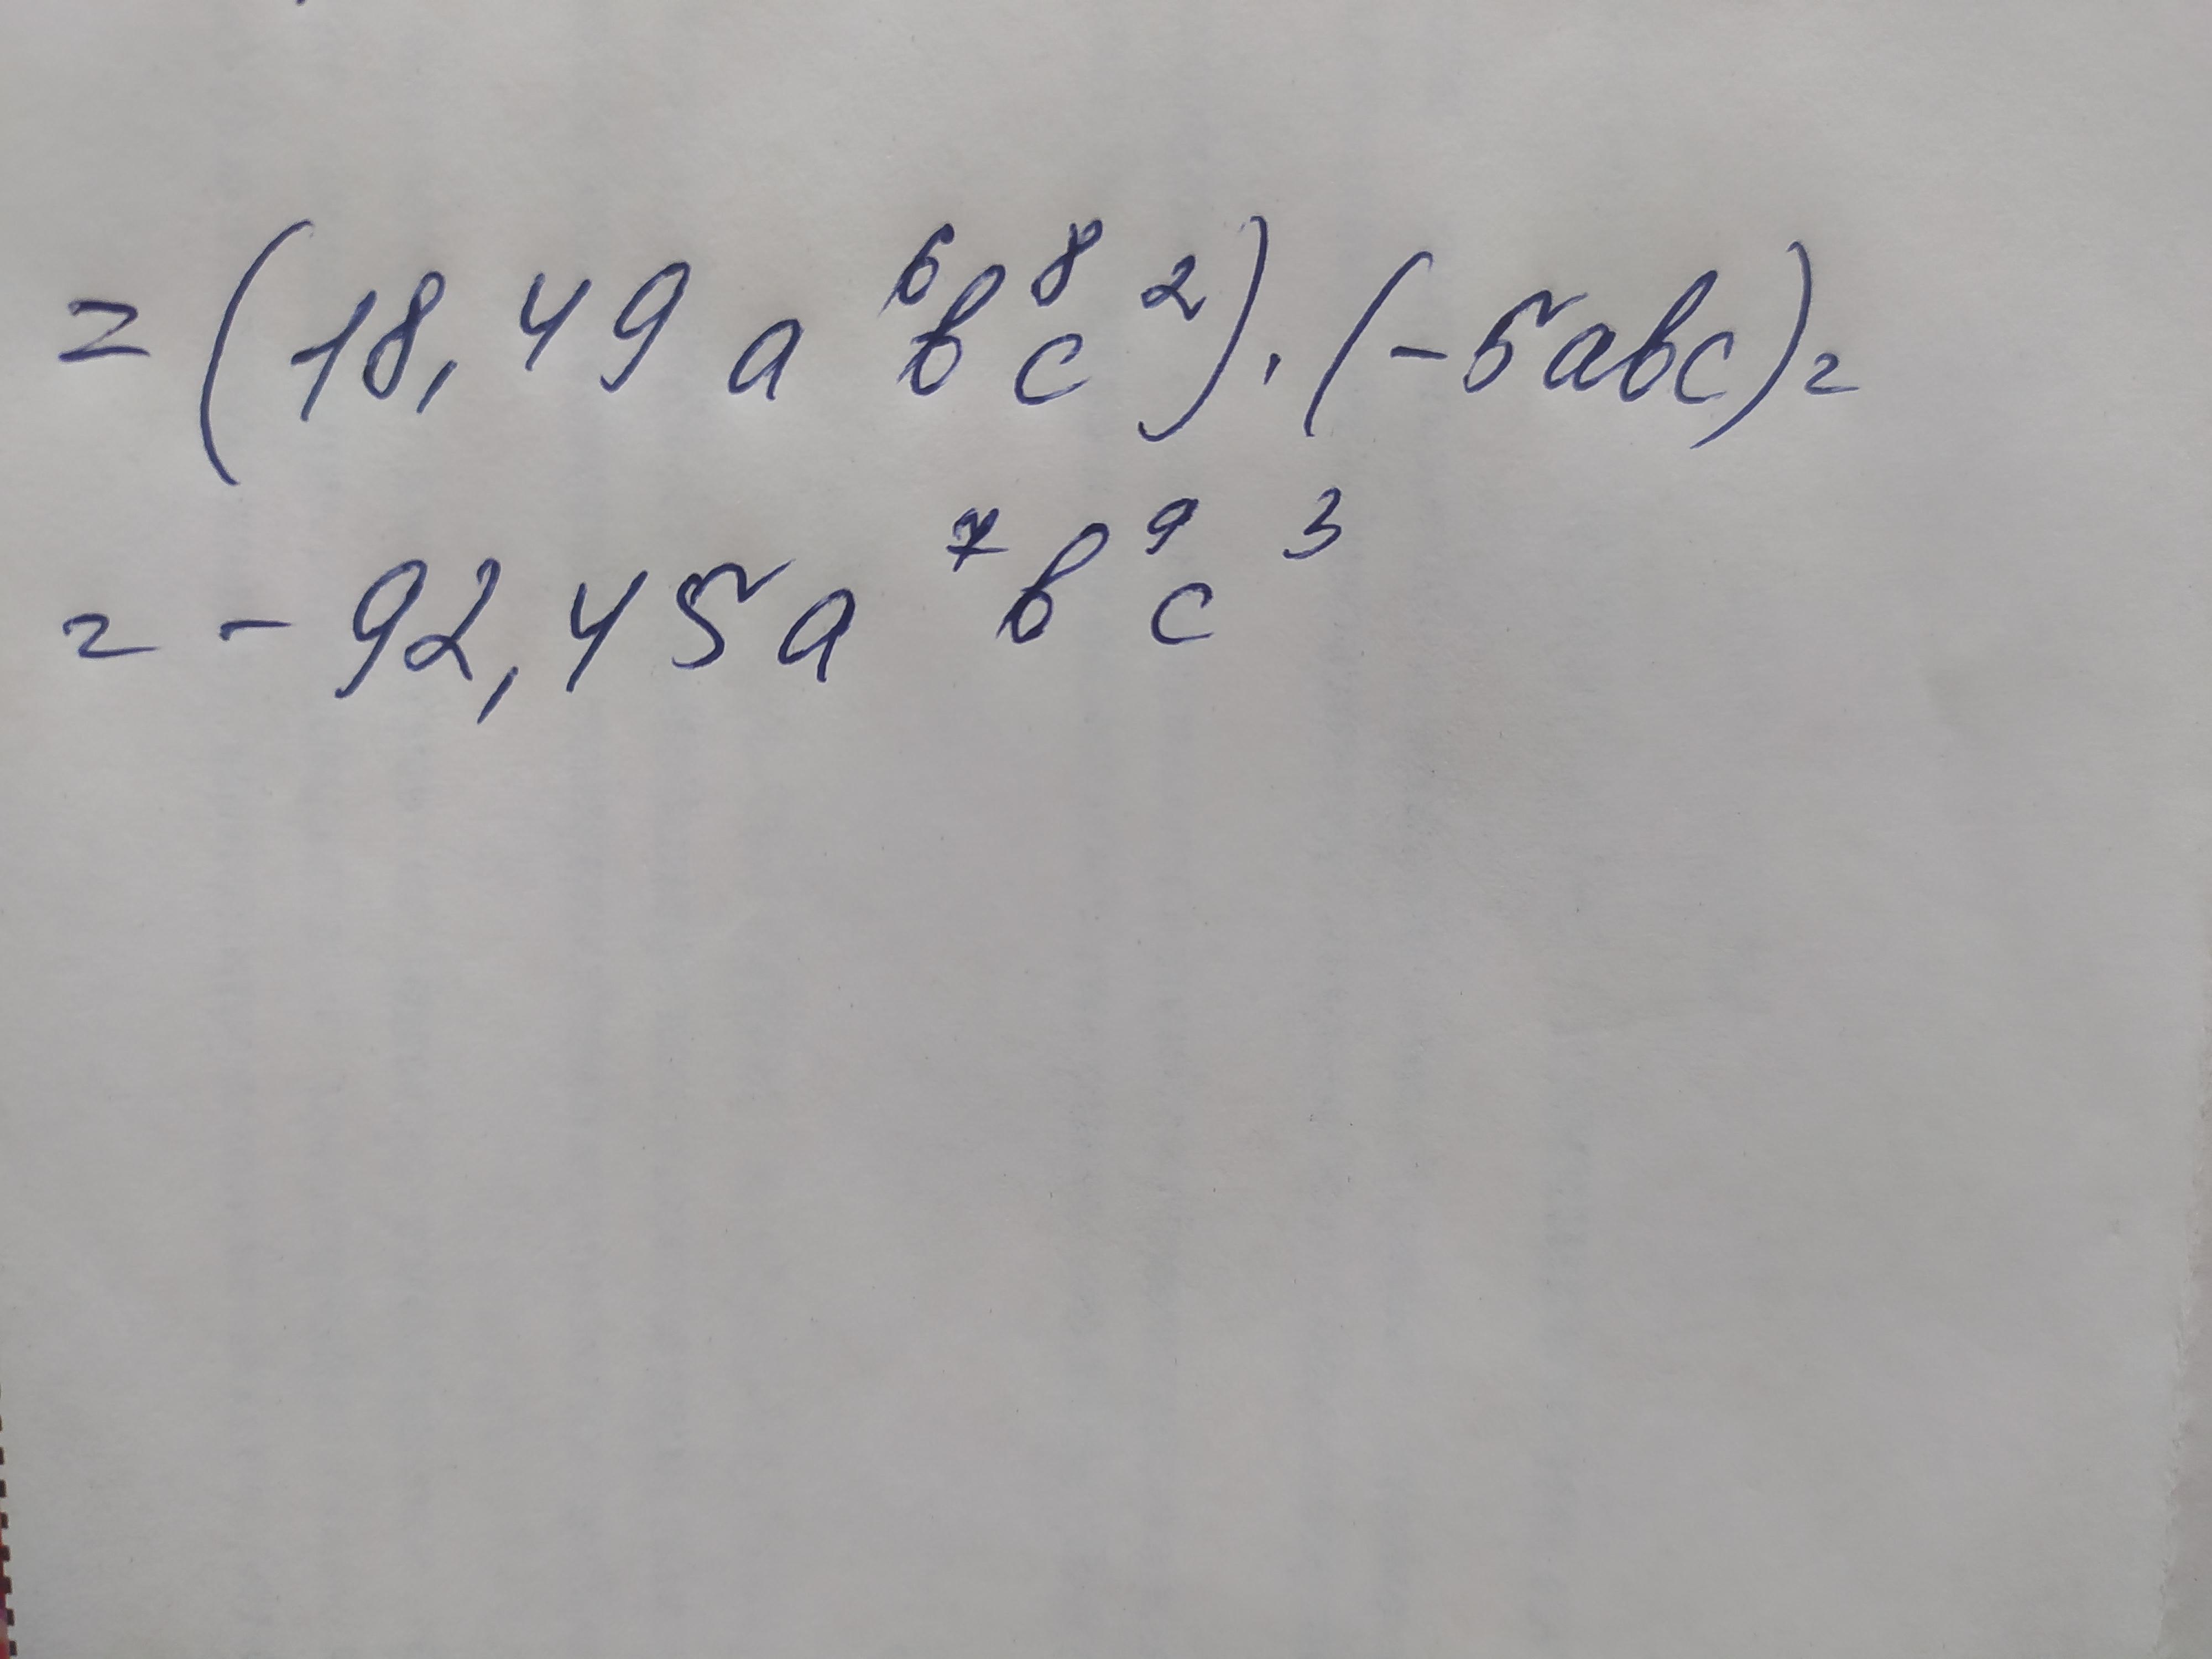 = (18,49 a⁶b⁸c²) · (-5abc) =
= - 92,45a⁷b⁹c³